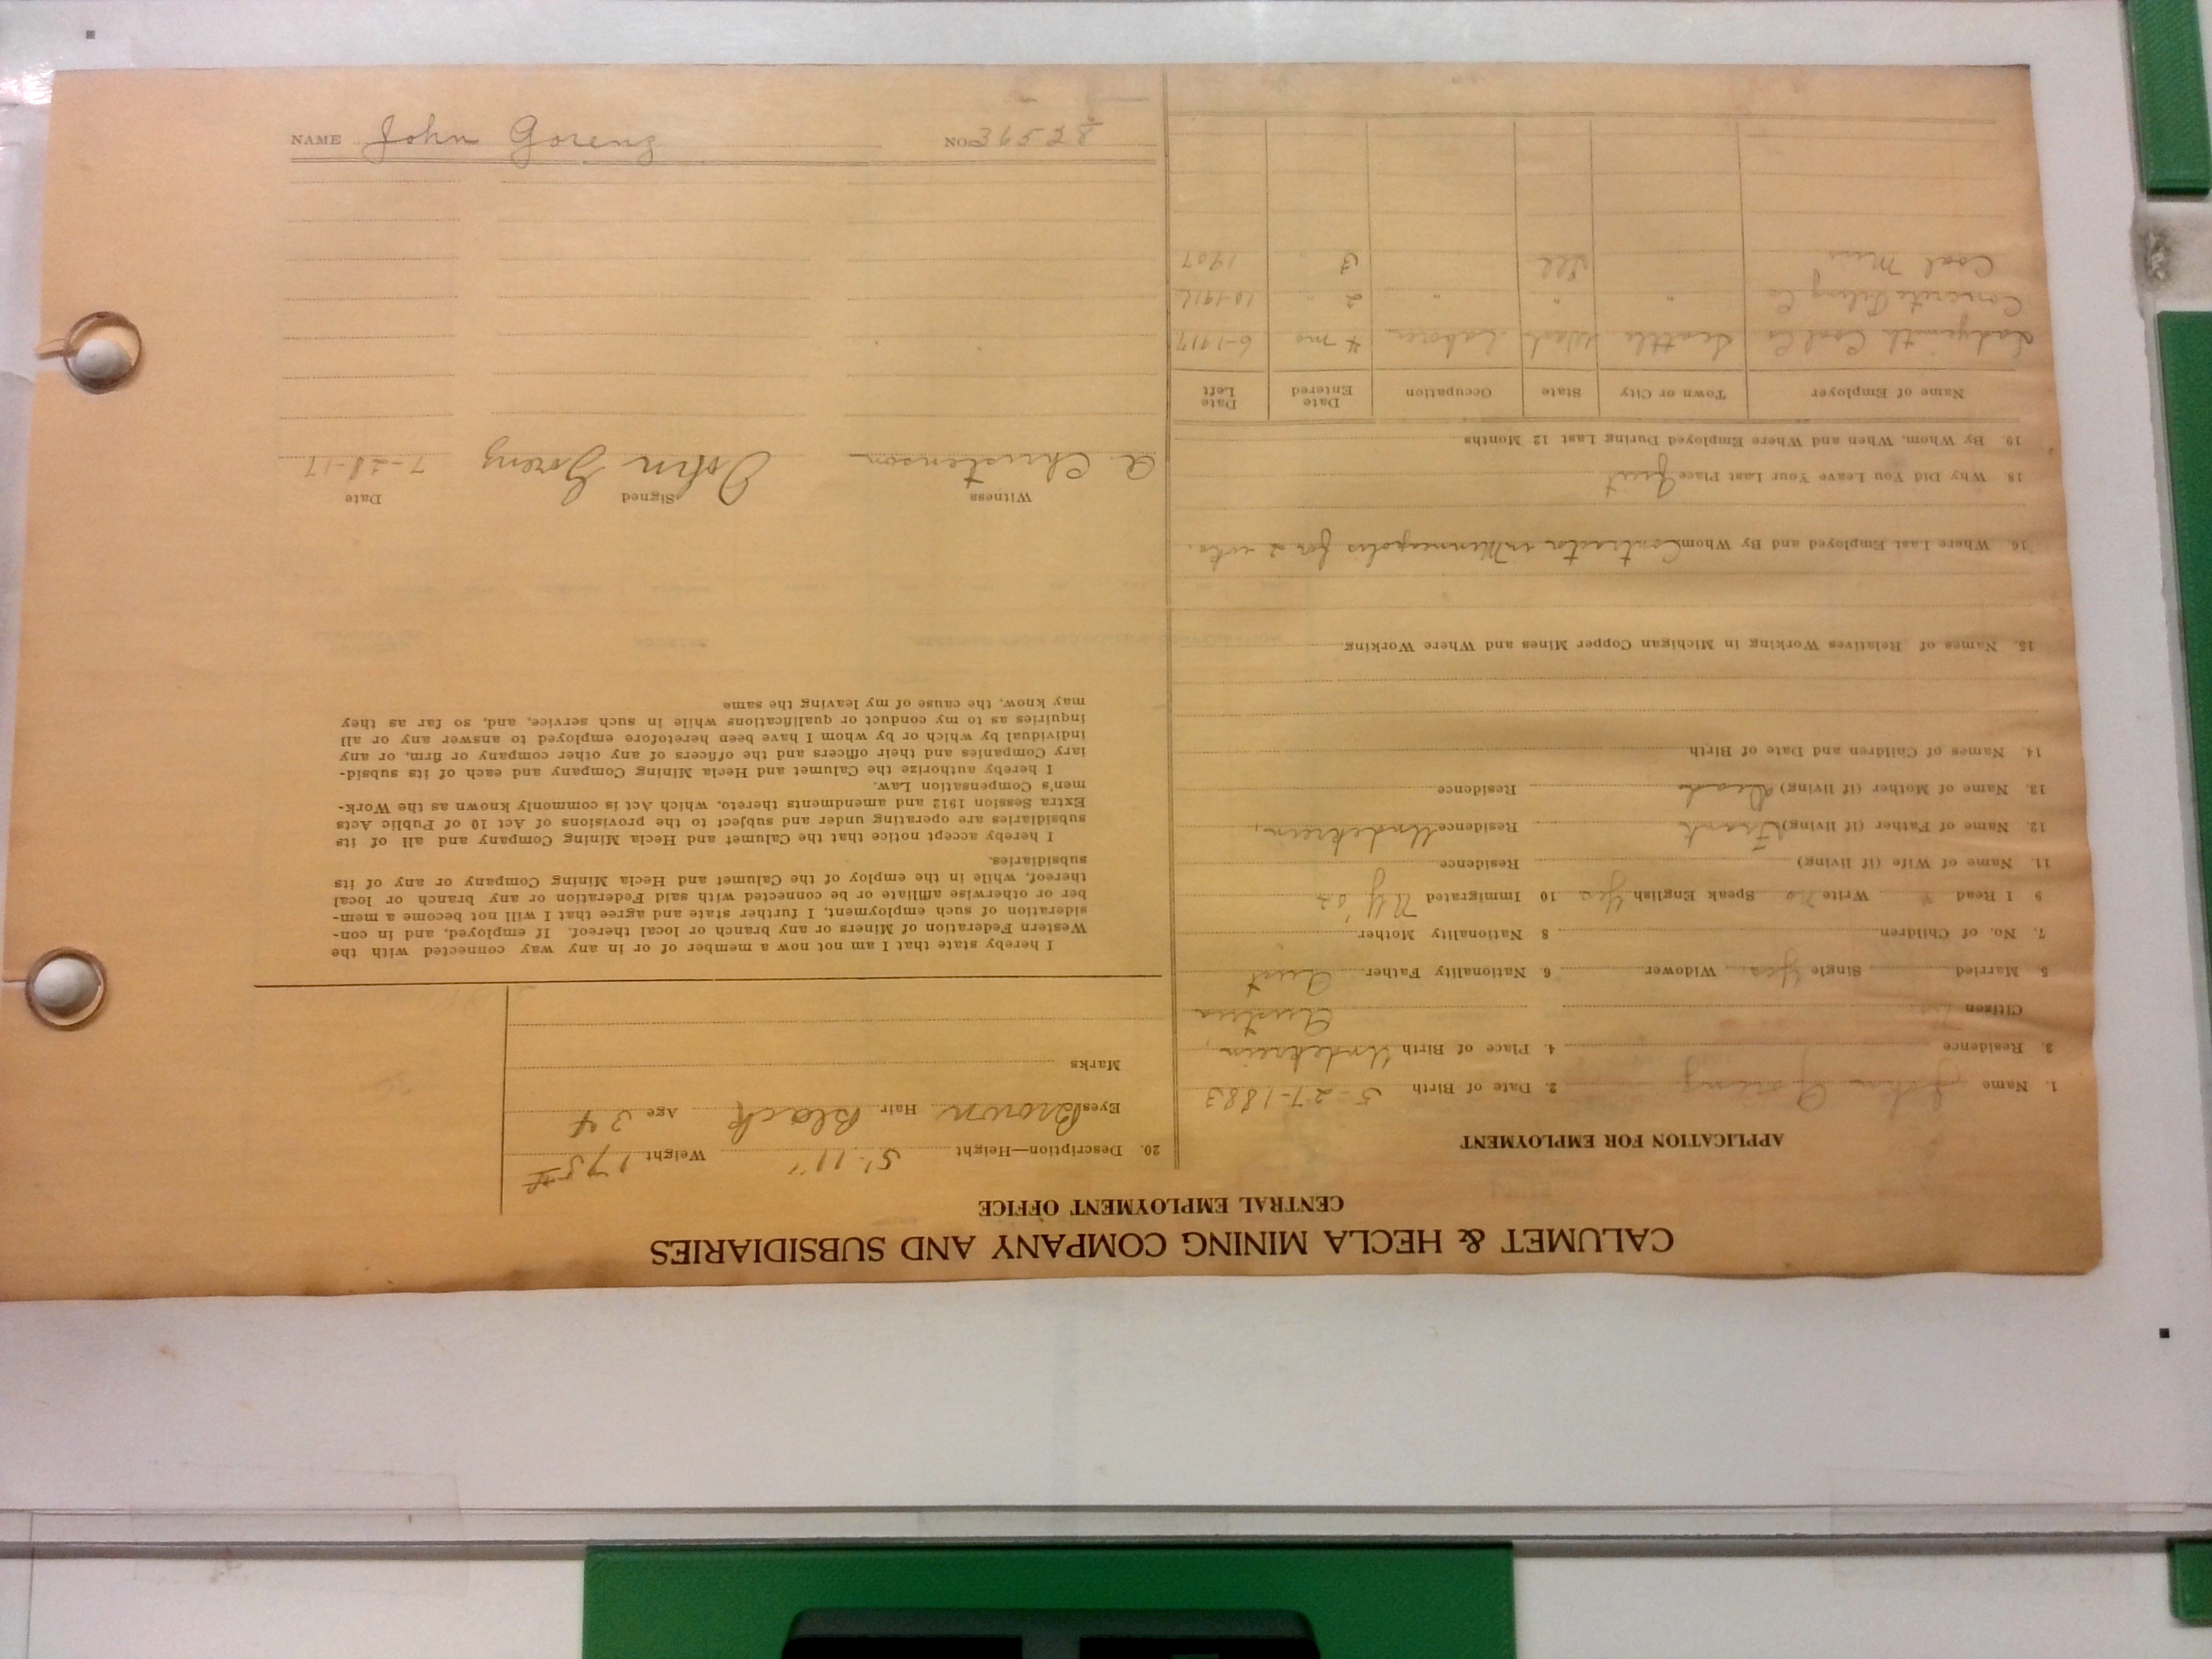 CALUMET & HECLA MINING COMPANY AND SUBSIDIARIES
CENTRAL EMPLOYMENT OFFICE
APPLICATION FOR EMPLOYMENT
1. Name John Gorenz 2. Date of Birth 5-27-1883
3. Residence 4. Place of Birth
Citizen Austria
5 Married Single Yes. Widower 6. Nationality Father Aust
7. No. of Children 8 Nationality Mother
9 I Read Write no Speak English Yes 10 Immigrated N.Y. '02
11. Name of Wife (if living) Residence
12. Name of Father (if living) Frank Residence
13. Name of Mother (if living) Dead Residence
14. Names of Children and Date of Birth
15. Names of Relatives Working in Michigan Copper Mines and Where Working
16. Where Last Employed and By Whom Contractor in Minneapolis for 2 wks.
18. Why Did You Leave Your Last Place Quit
19. By Whom, When and Where Employed During Last 12 Months
Name of Employer Town or City State Occupation Date Entered Date Left
Ladysmith Coal Co Seattle Wash Laborer 4 mo 6-1917
Concrete Piling Co " " " 2 " 10-1916
Coal Mine Ill 3 " 1907
20. Description—Height 5' 11" Weight 175#
Eyes Brown Hair Black Age 34
Marks
I hereby state that I am not now a member of or in any way connected with the
Western Federation of Miners or any branch or local thereof. If employed, and in con-
sideration of such employment, I further state and agree that I will not become a mem-
ber or otherwise affiliate or be connected with said Federation or any branch or local
thereof, while in the employ of the Calumet and Hecla Mining Company or any of its
subsidiaries.
I hereby accept notice that the Calumet and Hecla Mining Company and all of its
subsidiaries are operating under and subject to the provisions of Act 10 of Public Acts
Extra Session 1912 and amendments thereto, which Act is commonly known as the Work-
men's Compensation Law.
I hereby authorize the Calumet and Hecla Mining Company and each of its subsid-
iary Companies and their officers and the officers of any other company or firm, or any
individual by which or by whom I have been heretofore employed to answer any or all
inquiries as to my conduct or qualifications while in such service, and, so far as they
may know, the cause of my leaving the same
Witness Signed Date
A. Christenson John Gorenz 7-28-17
NAME John Gorenz NO. 36528